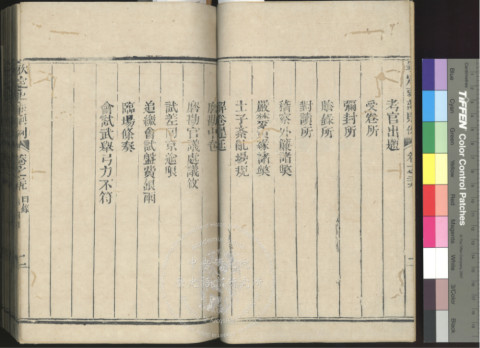 考官出題
受卷所
彌封所
謄錄所
對讀所
稽察外簾諸獘
嚴禁夤緣諸獘
士子紊亂場規
解卷遲延
磨勘官議處議敘
試卷到京違限
追繳會試盤費銀兩
臨場條奏
會試武舉弓力不符
TIFFEN Color Control Patches
Blue
Cyan
Green
Yellow
Red
Magenta
White
Black